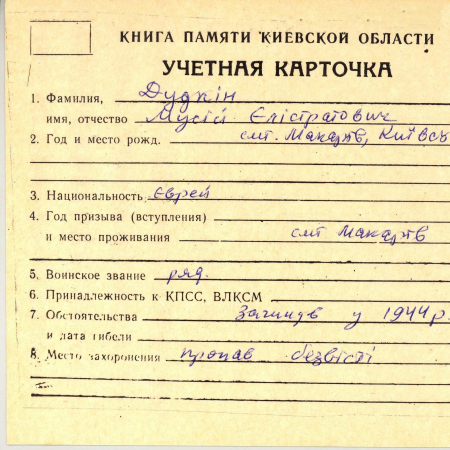 КНИГА ПАМЯТИ КИЕВСКОЙ ОБЛАСТИ
УЧЕТНАЯ КАРТОЧКА
1. Фамилия, Дудкін
имя, отчество Мусій Єлістратович
2. Год и место рожд. смт. Макарів, Київсь
3. Национальность Єврей
4. Год призыва (вступления)
и место проживания смт Макарів
5. Воинское звание ряд.
6. Принадлежность к КПСС, ВЛКСМ
7. Обстоятельства Загинув у 1944 р.
и дата гибели
8. Место захоронения пропав безвісті